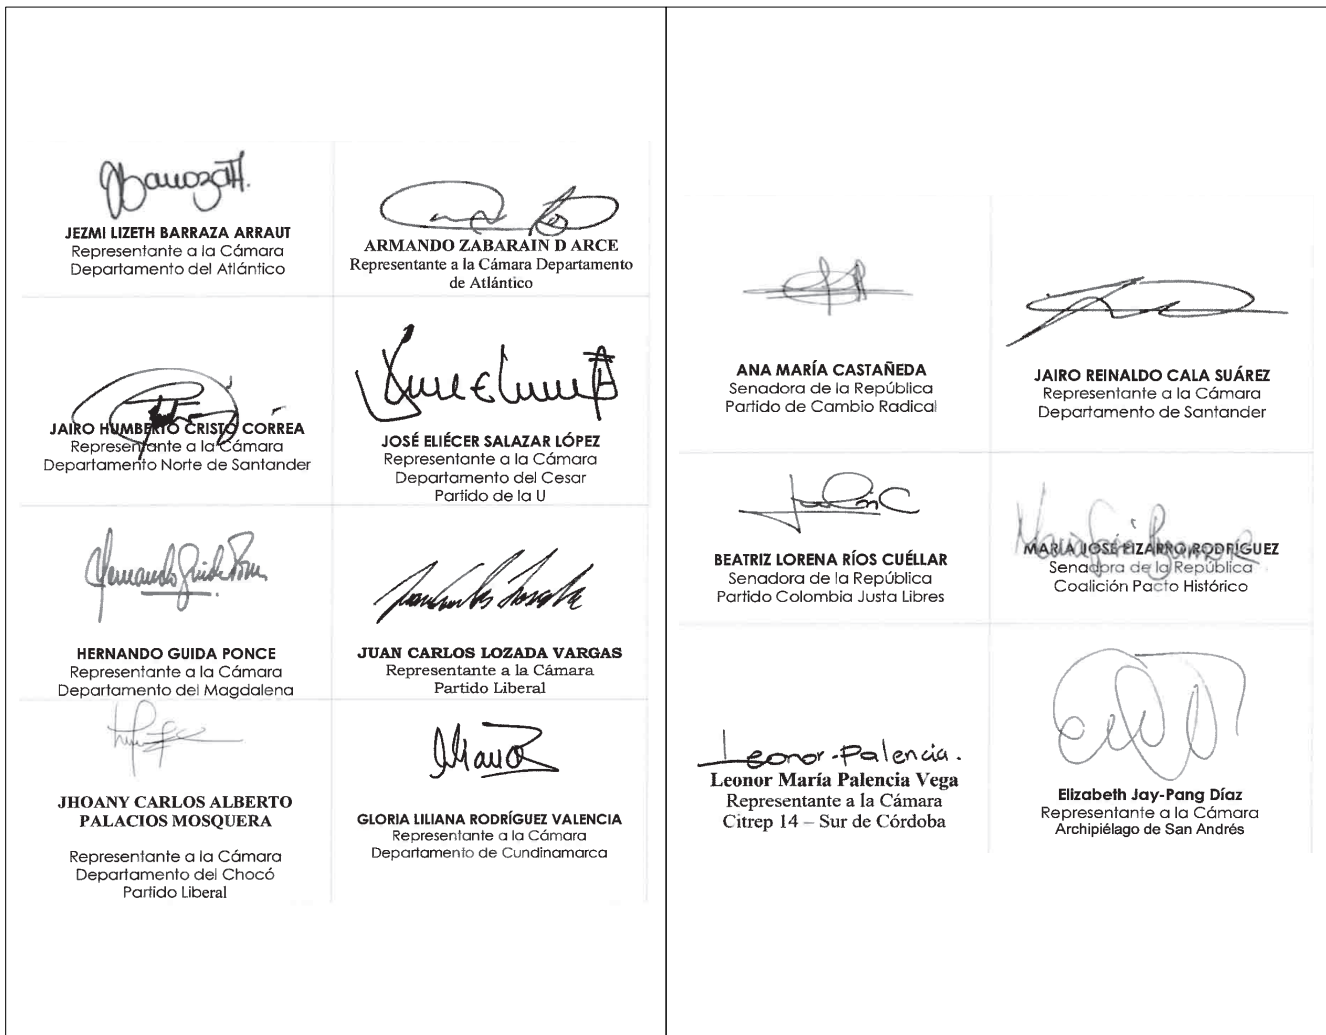 JEZMI LIZETH BARRAZA ARRAUT
Representante a la Cámara
Departamento del Atlántico
ARMANDO ZABARAIN D ARCE
Representante a la Cámara Departamento
de Atlántico
JAIRO HUMBERTO CRISTO CORREA
Representante a la Cámara
Departamento Norte de Santander
JOSÉ ELIÉCER SALAZAR LÓPEZ
Representante a la Cámara
Departamento del Cesar
Partido de la U
HERNANDO GUIDA PONCE
Representante a la Cámara
Departamento del Magdalena
JUAN CARLOS LOZADA VARGAS
Representante a la Cámara
Partido Liberal
JHOANY CARLOS ALBERTO
PALACIOS MOSQUERA
Representante a la Cámara
Departamento del Chocó
Partido Liberal
GLORIA LILIANA RODRÍGUEZ VALENCIA
Representante a la Cámara
Departamento de Cundinamarca
ANA MARÍA CASTAÑEDA
Senadora de la República
Partido de Cambio Radical
JAIRO REINALDO CALA SUÁREZ
Representante a la Cámara
Departamento de Santander
BEATRIZ LORENA RÍOS CUÉLLAR
Senadora de la República
Partido Colombia Justa Libres
MARÍA JOSÉ PIZARRO RODRÍGUEZ
Senadora de la República
Coalición Pacto Histórico
Leonor Palencia.
Leonor María Palencia Vega
Representante a la Cámara
Citrep 14 – Sur de Córdoba
Elizabeth Jay-Pang Díaz
Representante a la Cámara
Archipiélago de San Andrés